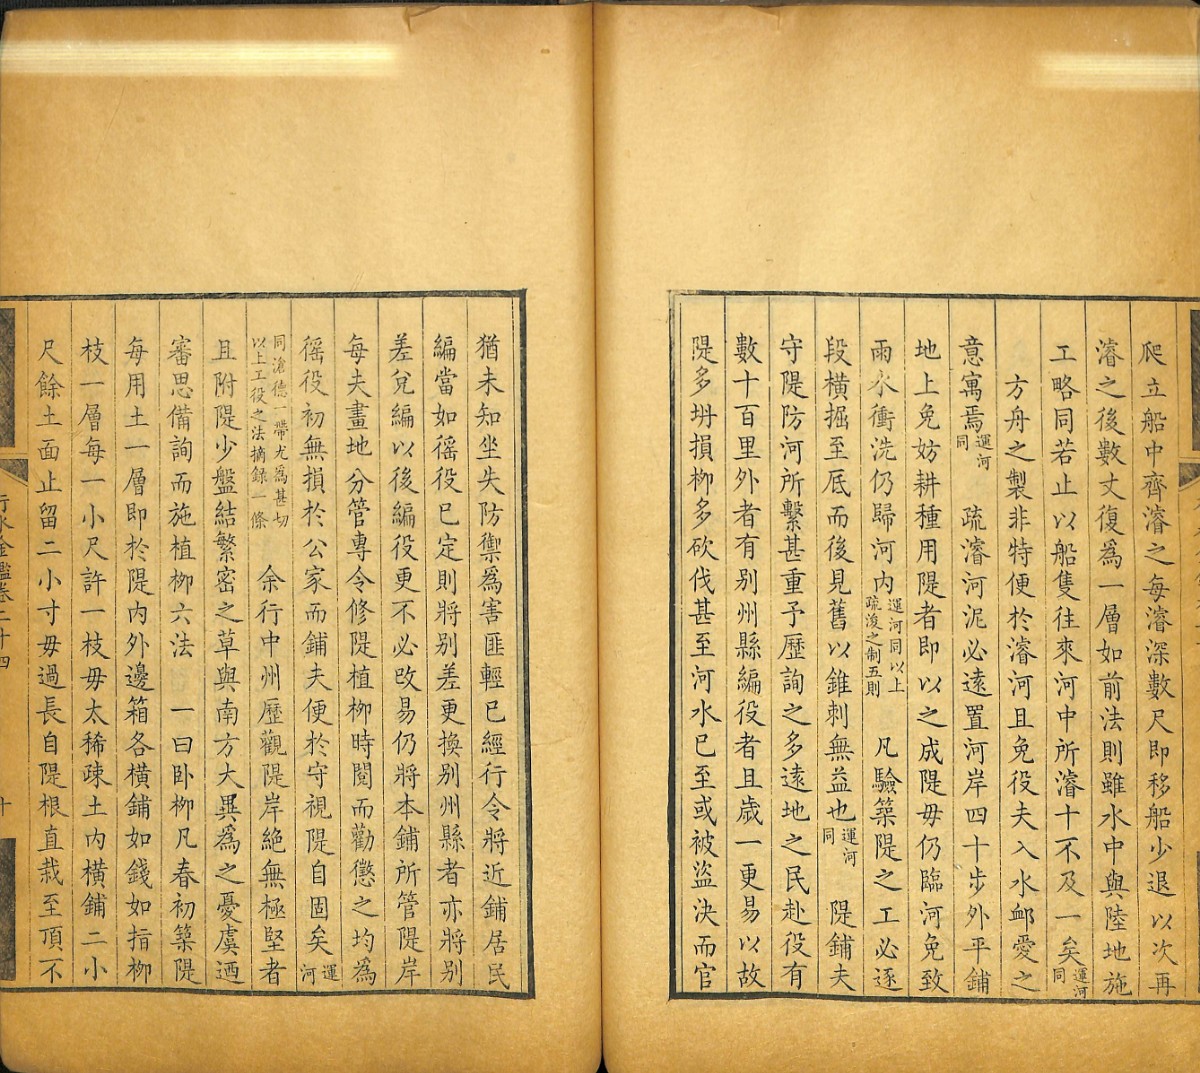 爬立船中齊濬之每濬深數尺即移船少退以次再
濬之後數丈復爲一層如前法則雖水中與陸地施
工略同若止以船隻往來河中所濬十不及一矣運河同
方舟之製非特便於濬河且免役夫入水䘏愛之
意寓焉運河同 疏濬河泥必遠置河岸四十步外平鋪
地上免妨耕種用隄者即以之成隄毋仍臨河免致
雨水衝洗仍歸河內運河同以上疏浚之制五則 凡驗築隄之工必逐
段橫掘至底而後見舊以錐刺無益也運河同 隄鋪夫
守隄防河所繫甚重予歷詢之多遠地之民赴役有
數十百里外者有別州縣編役者且歲一更易以故
隄多坍損柳多砍伐甚至河水已至或被盜決而官
猶未知坐失防禦爲害匪輕已經行令將近鋪居民
編當如徭役已定則將別差更換別州縣者亦將別
差兌編以後編役更不必改易仍將本鋪所管隄岸
每夫畫地分管專令修隄植柳時閱而勸懲之均爲
徭役初無損於公家而鋪夫便於守視隄自固矣運河
同滄德一帶尤爲甚切以上工役之法摘錄一條 余行中州歷觀隄岸絕無極堅者
且附隄少盤結繁密之草與南方大異爲之憂虞迺
審思備詢而施植柳六法 一曰臥柳凡春初築隄
每用土一層即於隄內外邊箱各橫鋪如錢如指柳
枝一層每一小尺許一枝毋太稀疎土內橫鋪二小
尺餘土面止留二小寸毋過長自隄根直栽至頂不
行水金鑑卷二十四
十